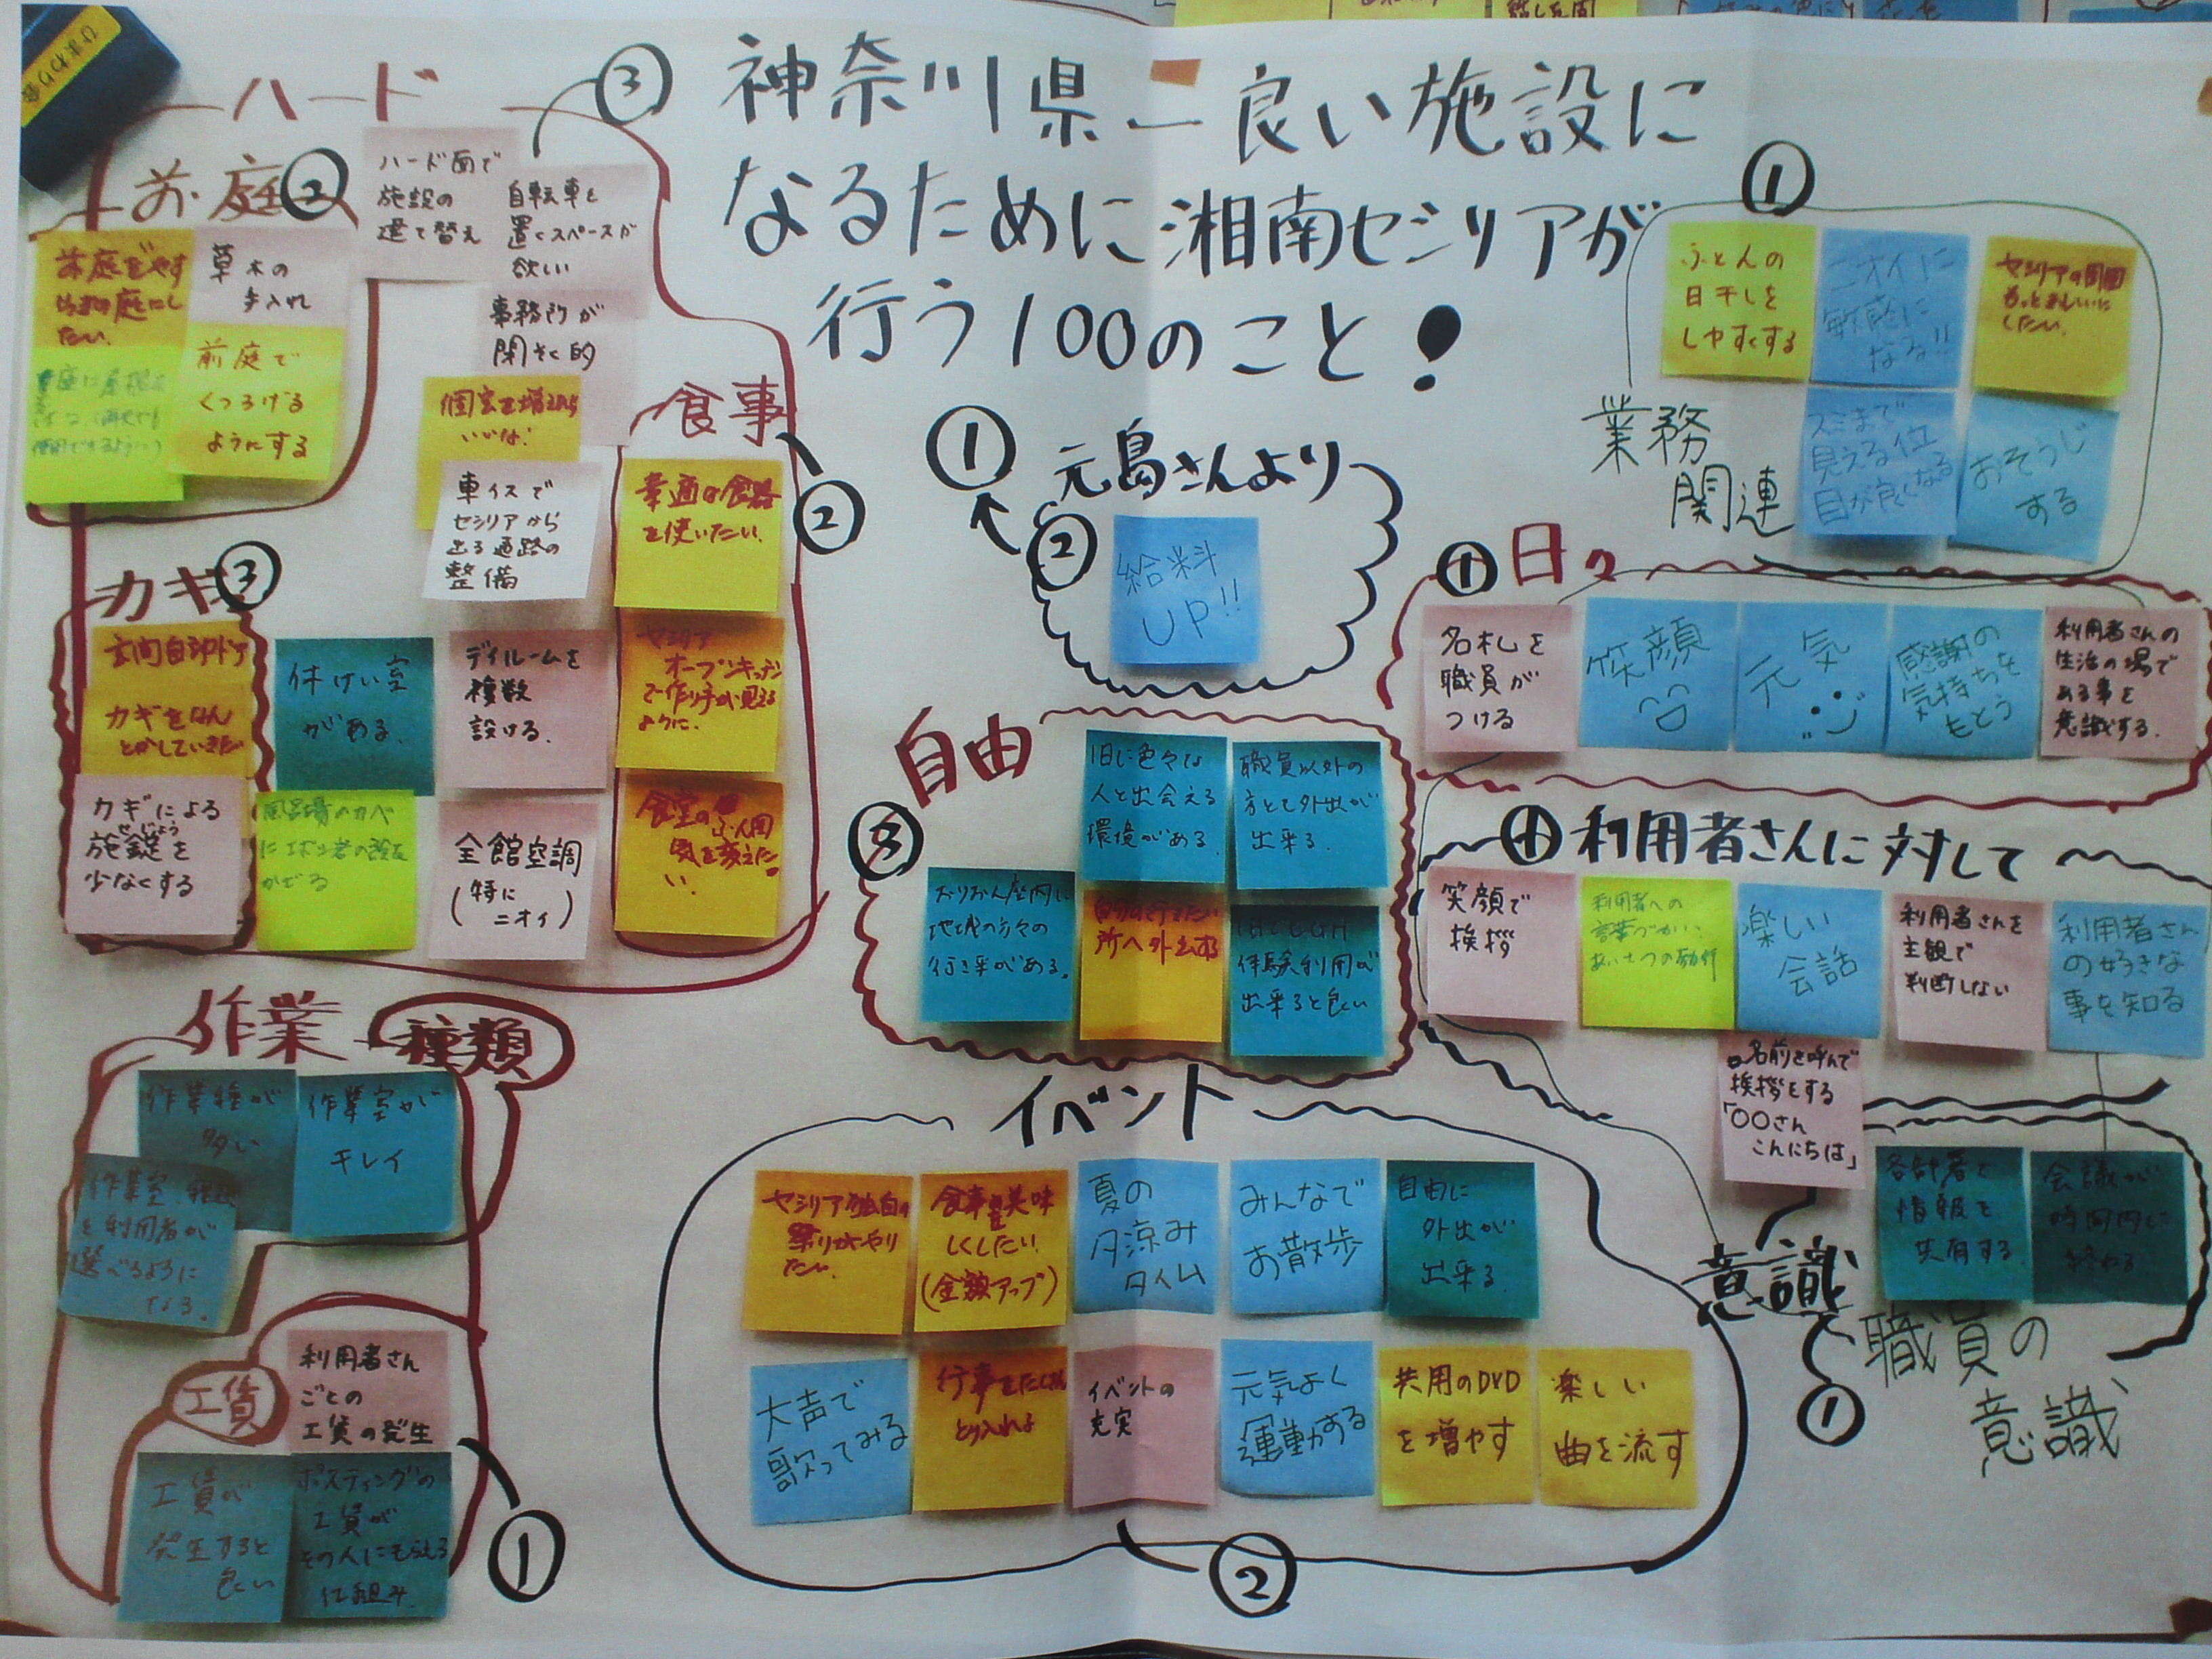 神奈川県一良い施設に
なるために湘南セシリアが
行う100のこと!
ハード
③
お庭
②
ハード面で
施設の
建て替え
自転車を
置くスペースが
欲しい
事務所が
閉そく的
草木の
手入れ
前庭で
くつろげる
ようにする
個室を増えたら
いいな!
車イスで
セシリアから
出る通路の
整備
食事
②
を使いたい。
セシリア
オープンキッチン
で作り手が見える
ように。
食堂のふん囲
気を変えた
い。
カギ
③
玄関自動ドア
カギをなん
とかしていきたい
カギによる
施錠を
せじょう
少なくする
休けい室
がある。
デイルームを
複数
設ける。
全館空調
(特に
ニオイ)
作業
種類
作業種が
多い
作業室が
キレイ
を利用者が
選べるように
なる。
工賃
利用者さん
ごとの
工賃の発生
工賃が
発生すると
良い
ポスティングの
工賃が
その人にもらえる
仕組み。
①
①
元島さんより
②
給料
UP!!
自由
③
1日に色々な
人と出会える
環境がある。
職員以外の
方とも外出が
出来る。
おりおん座内に
地域の方々の
行き来がある。
所へ外出する
体験利用が
出来ると良い
イベント
セシリア独自の
祭りがやり
たい。
食事を美味
しくしたい
(金額アップ)
夏の
夕涼み
タイム
みんなで
お散歩
自由に
外出が
出来る
大声で
歌ってみる
行事をたくさん
とり入れる
イベントの
充実
元気よく
運動する
共用のDVD
を増やす
楽しい
曲を流す
②
①
ふとんの
日干しを
しやすくする
ニオイに
敏感に
なる!!
セシリアの周囲
もっと
したい。
業務
関連
スミまで
見える位
目が良くなる
おそうじ
する
①
日々
名札を
職員が
つける
笑顔
元気
感謝の
気持ちを
もとう
利用者さんの
生活の場で
ある事を
意識する。
①
利用者さんに対して
笑顔で
挨拶
利用者への
言葉づかい、
あいさつの励行
楽しい
会話
利用者さんを
主観で
判断しない
利用者さん
の好きな
事を知る
名前を呼んで
挨拶をする
「〇〇さん
こんにちは」
各部署と
情報を
共有する
会議が
時間内に
終わる
意識
①
職員の
意識